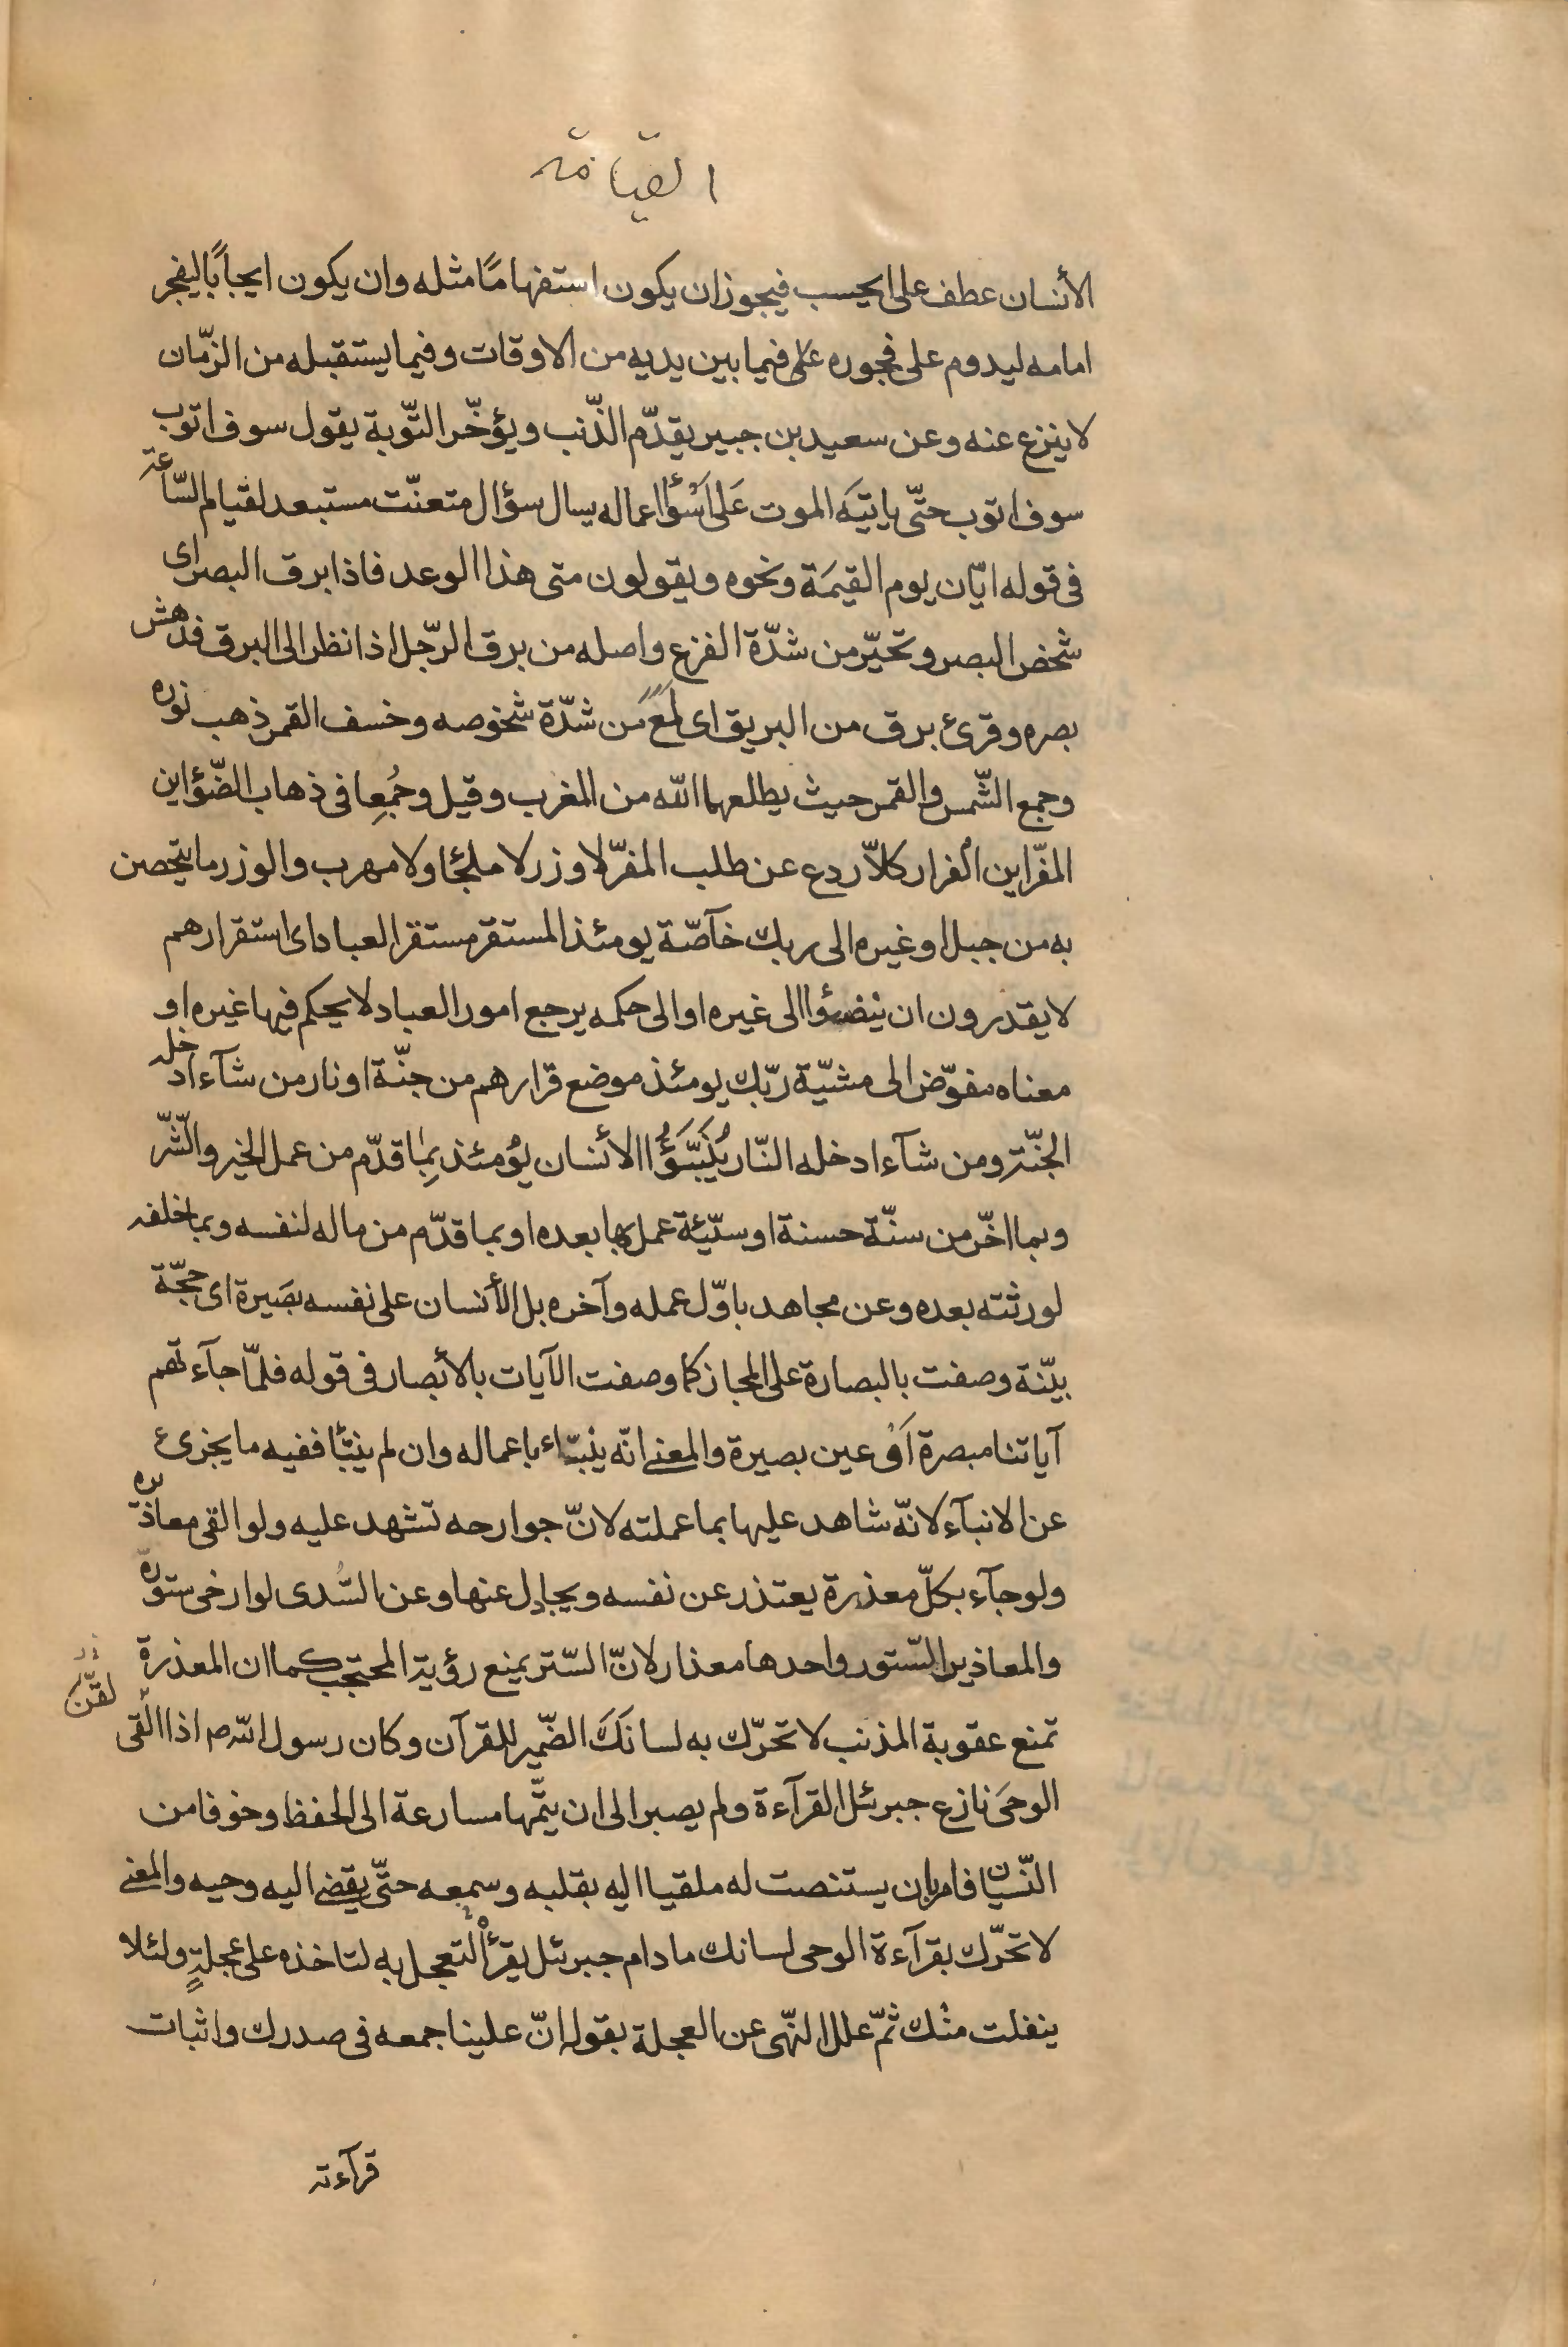 القيامة
الأنسان عطف على ايحسب فيجوز ان يكون استفهامًا مثله وان يكون ايجابًا ليفجر
امامه ليدوم على فجوره على فيما بين يديه من الاوقات وفيما يستقبله من الزّمان
لا ينزع عنه وعن سعيد بن جبير يقدّم الذّنب ويؤخّر التّوبة يقول سوف اتوب
سوف اتوب حتّى ياتيَه الموت عَلى اَسْوُأ اعماله يسال سؤال متعنّت مستبعد لقيام السّاعة
فى قوله ايّان يوم القيمَة ونحوه ويقولون متى هذا الوعد فاذا برق البصر اى
شخص البصر وتحيّر من شدّة الفزع واصله من برق الرّجل اذا نظر الى البرق فدهش
بصره وقرئ برق من البريق اى لَمَعَ من شدّة شخوصه وخسف القمر ذهب نوره
وجمع الشّمس والقمر حيث يطلعهما اللّه من المغرب وقيل وجُمِعا فى ذهاب الضّؤ اين
المفرّ اين الفرار كلاّ ردع عن طلب المفرّ لا وزر لا ملجئا ولا مهرب والوزر ما يتحصن
به من جبل او غيره الى ربك خآصّة يومئذ المستقر مستقر العباد اى استقرارهم
لا يقدرون ان ينضؤا الى غيره او الى حكمه يرجع امور العباد لا يحكم فيها غيره او
معناه مفوّض الى مشيّة ربّك يومئذ موضع قرارهم من جنّة او نار من شآء ادخله
الجنّة ومن شآء ادخله النّار يُنَبَّؤُا الأنسان يؤمئذ بِمٰا قدّم من عمل الخير والشّرّ
وبما اخّر من سنّة حسنة او سيّئة عمل بها بعده او بما قدّم من ماله لنفسه وبما خلفه
لورثته بعده وعن مجاهد باوّل عمله وآخره بل الأنسان على نفسه بصَيرة اى حجّة
بيّنة وصفت بالبصارة على المجاز كما وصفت الآيات بالأبصار فى قوله فلمّا جآءتهم
آياتنا مبصرة اَوْ عين بصيرة والمعنى انّه ينبّاء باعماله وان لم ينبّأ ففيه ما يجزىء
عن الانبآء لانّه شاهد عليها بما عملته لانّ جوارحه تشهد عليه ولو القى معاذيره
ولو جآء بكلّ معذرة يعتذر عن نفسه ويجادل عنها وعن السُّدى لو ارخى ستوره
والمعاذير السّتور واحدها معذار لانّ السّتر يمنع رؤية المحتجب كما ان المعذرة
تمنع عقوبة المذنب لا تحرّك به لسانَكَ الضّمير للقرآن وكان رسول اللّه ص اذا القى
لقّن
الوحىَ نازع جبرئل القرآءة ولم يصبر الى ان يتمّها مسارعة الى الحفظ وخوفا من
النّسيان فامر بان يستنصت له ملقيا اليه بقلبه وسمعه حتّى يقضى اليه وحيه والمعنى
لا تحرّك بقرآءة الوحى لسانك ما دام جبرئل يقرأ لتعجل به لتاخذه على عجلةٍ ولئلا
ينفلت منْك ثمّ علل النّهى عن العجلة بقوله انّ علينا جمعه فى صدرك واثبات
قرآءته